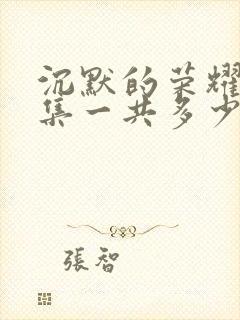 沉默的荣耀
集一共多少
張智